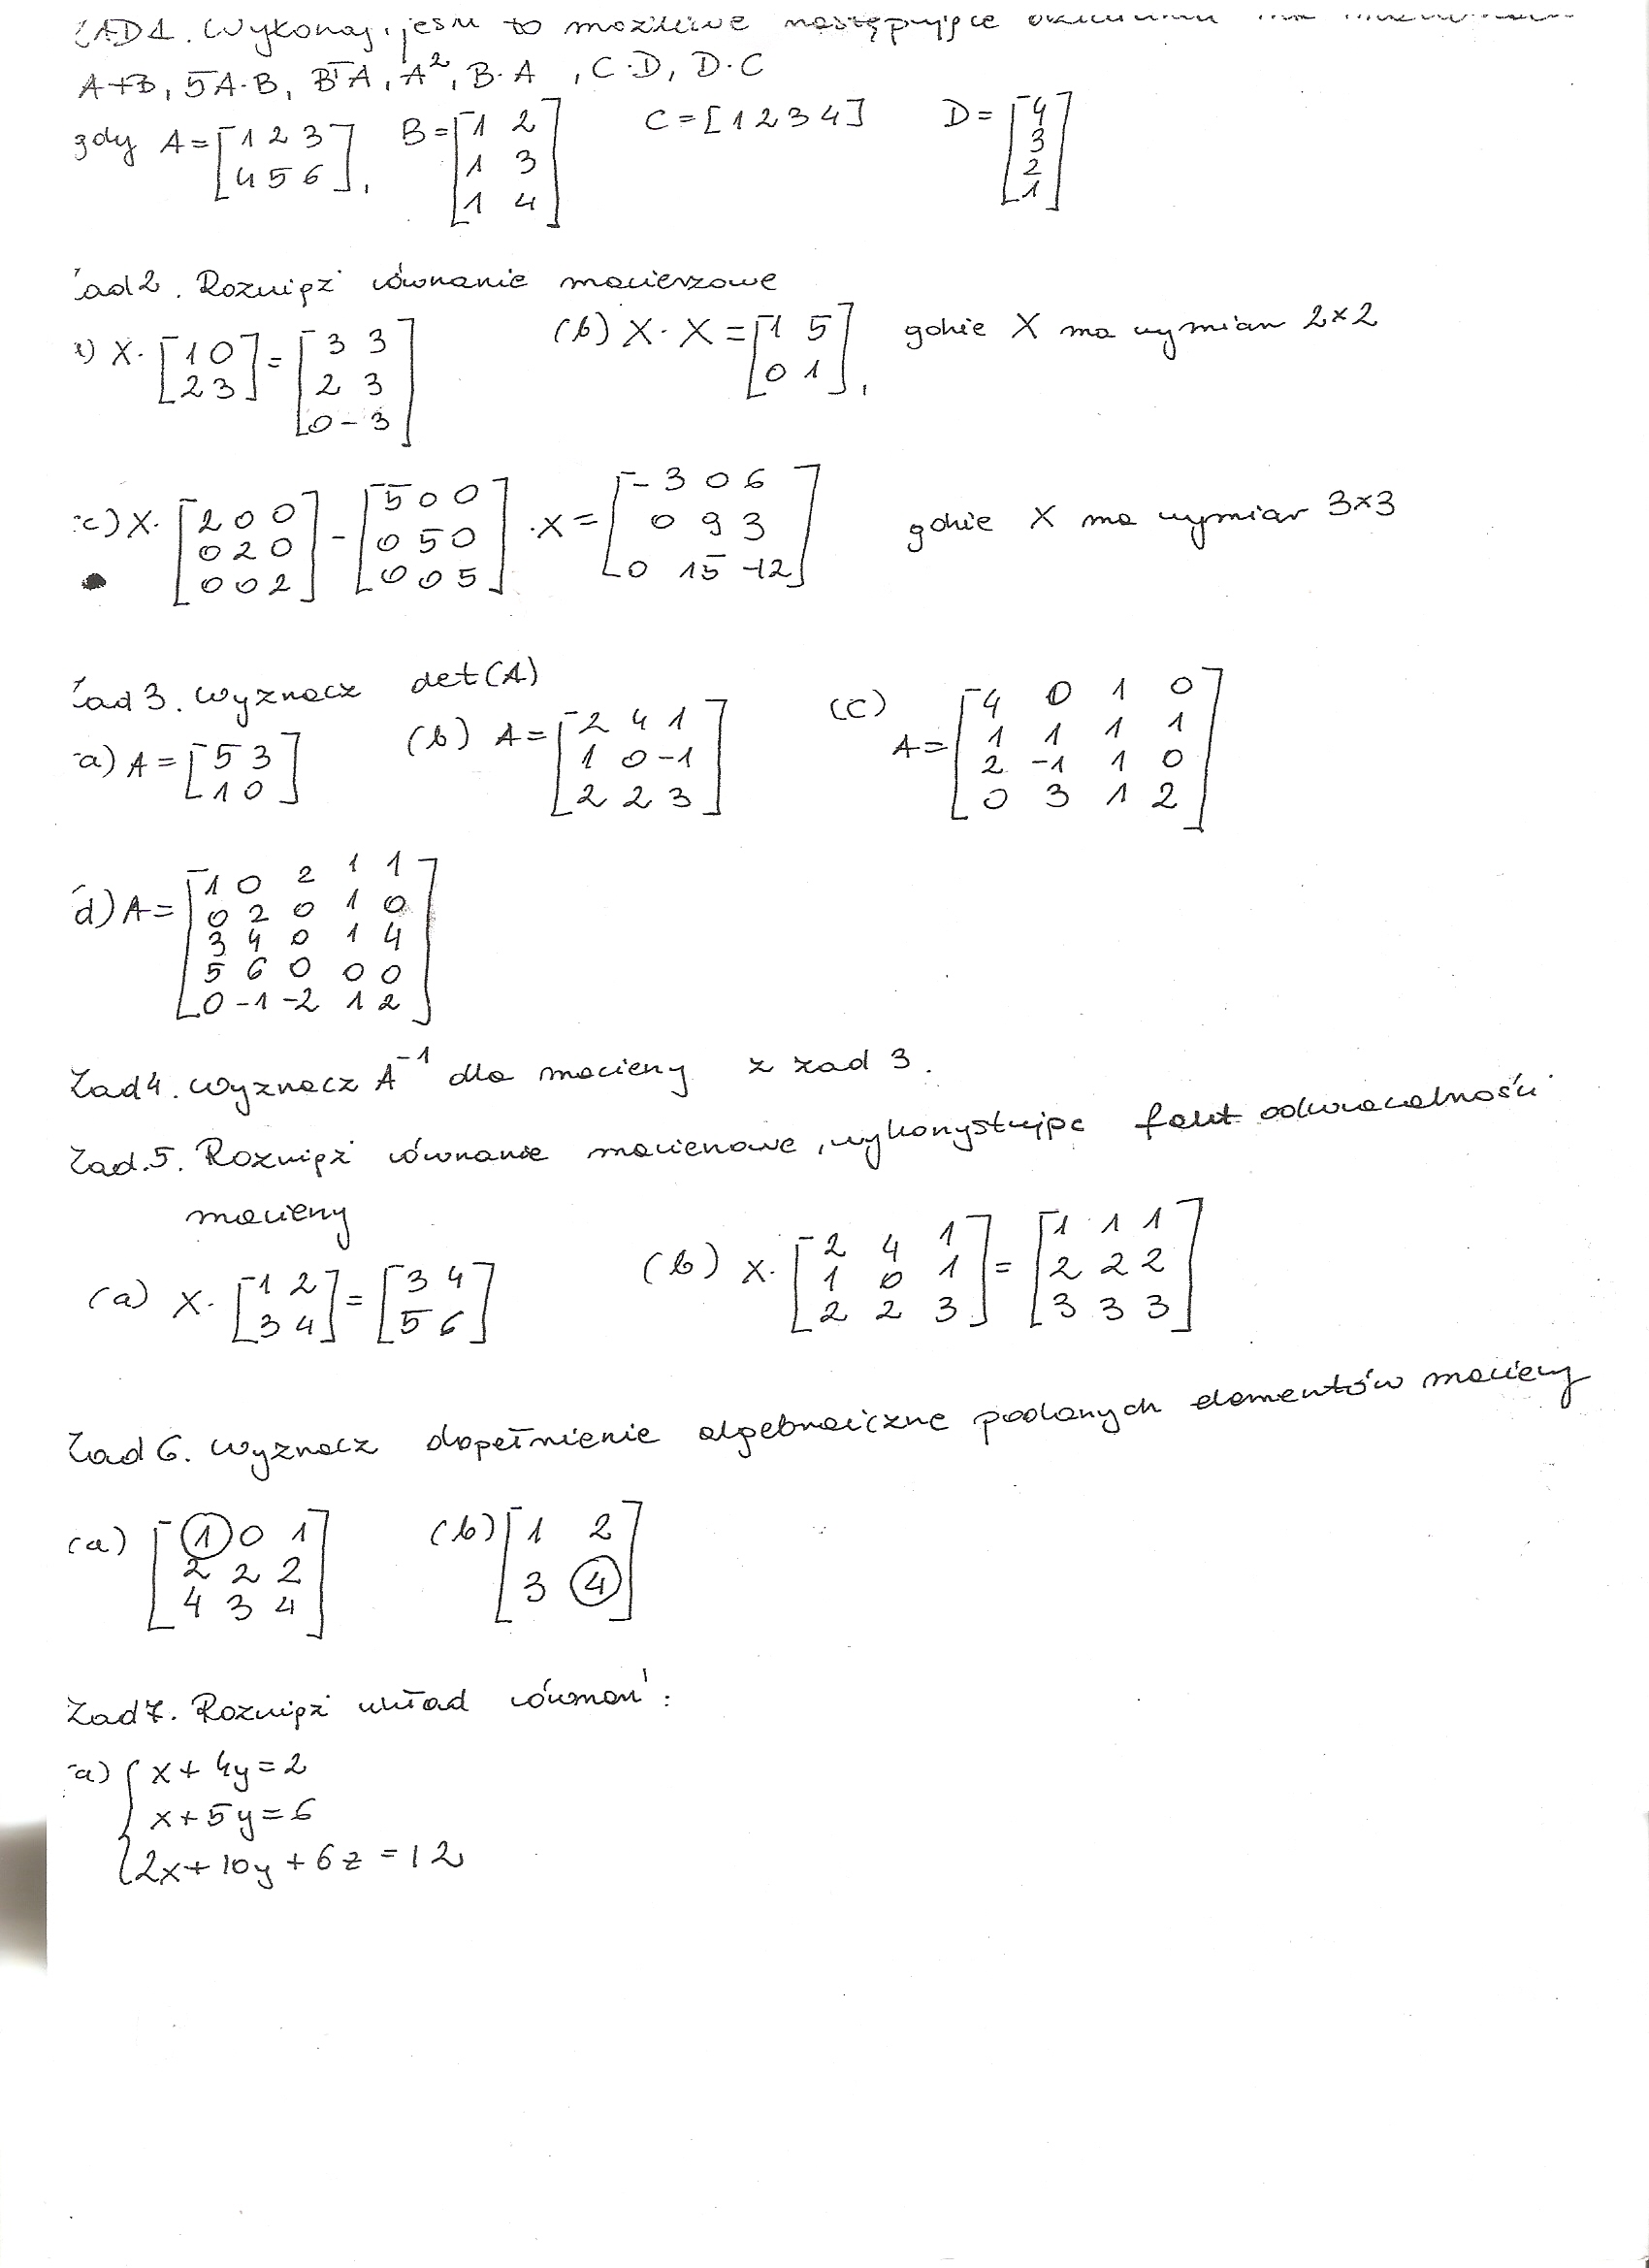 ZAD1. Wykonaj, jeśli to możliwe następujące
A+B, 5A·B, BᵀA, A², B·A, C·D, D·C
gdy A=[1 2 3 B=[1 2 C=[1 2 3 4] D=[4
4 5 6], 1 3 3
1 4] 2
1]
Zad 2. Rozwiąż równanie macierzowe
a) X·[1 0 = [3 3 (b) X·X=[1 5 gdzie X ma wymiar 2×2
2 3] 2 3 0 1],
0 -3]
(c) X·[2 0 0 - [5 0 0 ·X= [-3 0 6 gdzie X ma wymiar 3×3
0 2 0 0 5 0 0 9 3
0 0 2] 0 0 5] 0 15 -12]
Zad 3. Wyznacz det(A)
a) A=[5 3 (b) A=[2 4 1 (c) A=[4 0 1 0
1 0] 1 0 -1 1 1 1 1
2 2 3] 2 -1 1 0
0 3 1 2]
d) A=[1 0 2 1 1
0 2 0 1 0
3 4 0 1 4
5 6 0 0 0
0 -1 -2 1 2]
Zad 4. Wyznacz A⁻¹ dla macierzy z zad 3.
Zad.5. Rozwiąż równanie macierzowe, wykorzystując fakt odwracalności
macierzy
(a) X·[1 2 = [3 4 (b) X·[2 4 1 = [1 1 1
3 4] 5 6] 1 0 1 2 2 2
2 2 3] 3 3 3]
Zad 6. Wyznacz dopełnienie algebraiczne podanych elementów macierzy
(a) [1 0 1 (b) [1 2
2 2 2 3 4]
4 3 4]
Zad 7. Rozwiąż układ równań:
a) { x + 4y = 2
x + 5y = 6
2x + 10y + 6z = 12